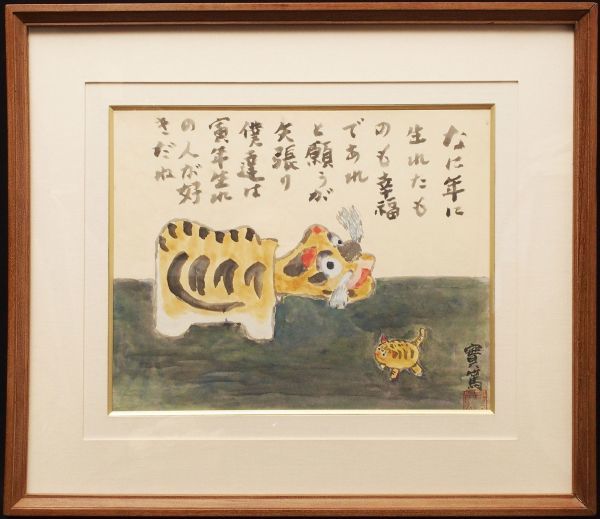 なに年に
生れたも
のも幸福
であれ
と願うが
矢張り
僕達は
寅年生れ
の人が好
きだね
實篤